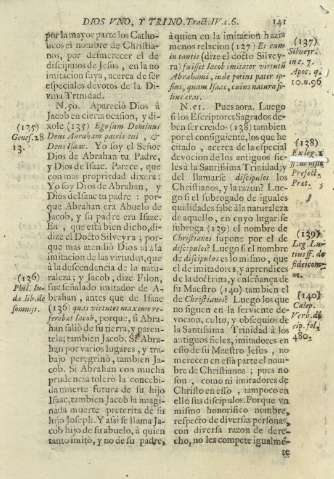 DIOS VNO, Y TRINO. Tract. IV. c. 6. 141
por la mayor parte los Catho-
licos el nombre de Christia-
nos, por desmerecer el de
discipulos de Jesus, en la no
imitacion suya, acerca de ser
especiales devotos de la Di-
vina Trinidad.
N. 50. Apareciò Dios à
Jacob en cierta ocasion, y di-
xole (135) Ego sum Dominus
Deus Abraham patris tui, &
Deus Isaac. Yo soy el Señor
Dios de Abrahan tu Padre,
y Dios de Isaac. Parece, que
con mas propriedad dixera:
Yo soy Dios de Abrahan, y
Dios de Isaac tu padre: por-
que Abrahan era Abuelo de
Jacob, y su padre era Isaac.
Ea, que està bien dicho, di-
ze el Docto Silveyra; porque
mas mirando Dios à la
imitacion de las virtudes, que
à la descendencia de la natu-
raleza; y Jacob, dize Filon,
fue señalado imitador de A-
brahan, antes que de Isaac
(136) quia virtutes maxime re-
ferebat Jacob, porque, si Abra-
han salió de su tierra, y paren-
tela; tambien Jacob. Si Abra-
han por varios lugares, y tra-
bajo peregrinò, tambien Ja-
cob. Si Abrahan con mucha
prudencia tolerò la
muerte futura de su hijo
Isaac, tambien Jacob la imagi-
nada muerte preterita de su
hijo Joseph. Y assi se llama Ja-
cob hijo de su abuelo, à quien
tanto imitò, y no de su padre,
(135)
Genes. 28
13.
(136)
Phil. Iu-
de lib. de
somnijs.
à quien en la imitacion hazia
menos relacion (127) Et cum
in tantis (dize el docto Silvey-
ra) fuisset Jacob imitator virtutis
Abrahami, inde potius pater ip-
sius, quam Isaac, cuius natura fi-
lius erat.
N. 51. Pues aora. Luego
si los Escriptores Sagrados de-
ben ser creidos (138) tambien
por el consiguiente, los que he
citado, acerca de la especial
devocion de los antiguos fie-
les à la Santissima Trinidad; y
del llamarse discipulos los
Christianos, y la razon? Lue-
go si el subrogado de iguales
qualidades sabe à la naturaleza
de aquello, en cuyo lugar se
subroga (139) el nombre de
Christianos supone por el de
discipulos? Luego si el nombre
de discipulos es lo mismo, que
el de imitadores, y aprendices
de la doctrina, y enseñança de
su Maestro (140) tambien el
de Christianos? Luego los que
no siguen en la servicte de-
vocion, culto, y obsequio de
la Santissima Trinidad à los
antiguos fieles, imitadores en
esso de su Maestro Jesus, no
merecen en essa parte el nom-
bre de Christianos; pues no
son, como ni imitadores de
Christo en esso, tampoco en
ello sus discipulos. Porque vn
mismo honorifico nombre,
respecto de diversas personas,
con diversa razon de dere-
cho, no les compete igualmē-
te
(137)
Silveyr.
Apoc. q.
10. n. 96
(138)
Ex leg. 1
Præfect.
Præt.
(139)
Leg. Lu-
tius ff. de
fideicom-
(140)
Calep.
Verb. di-
cip. fol.
4803